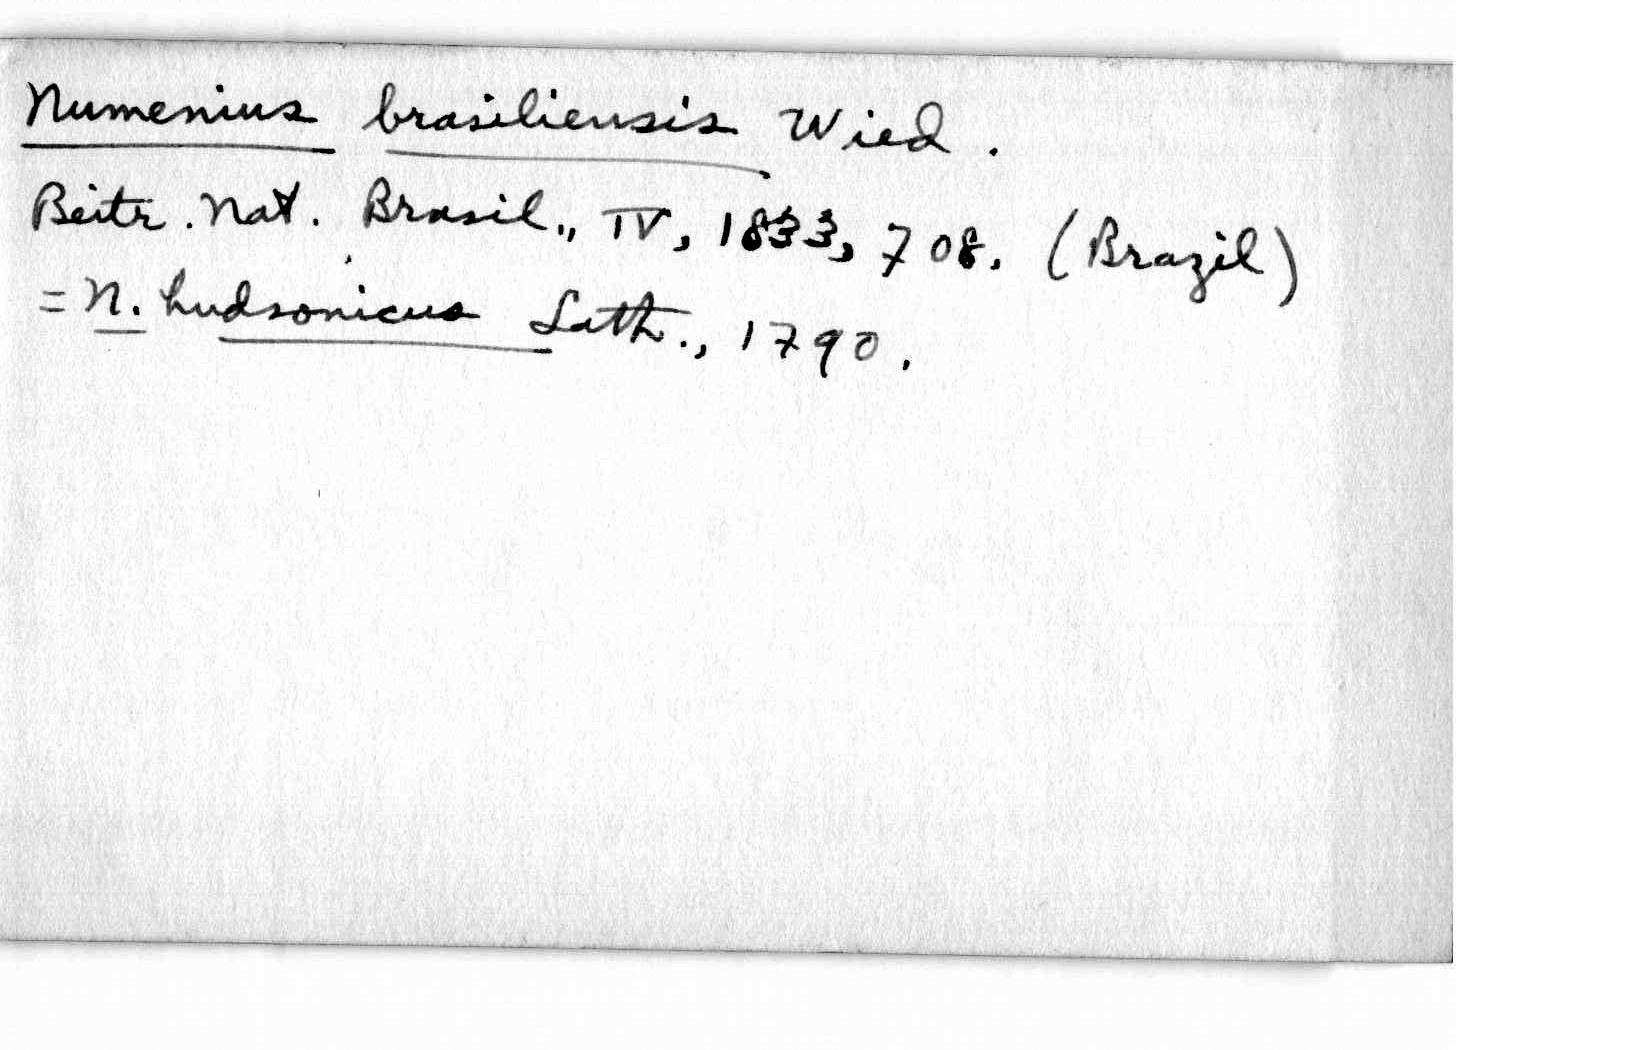 Numenius brasiliensis Wied.
Beitr. Nat. Brasil., IV, 1833, 708. (Brazil)
= N. hudsonicus Lath., 1790.